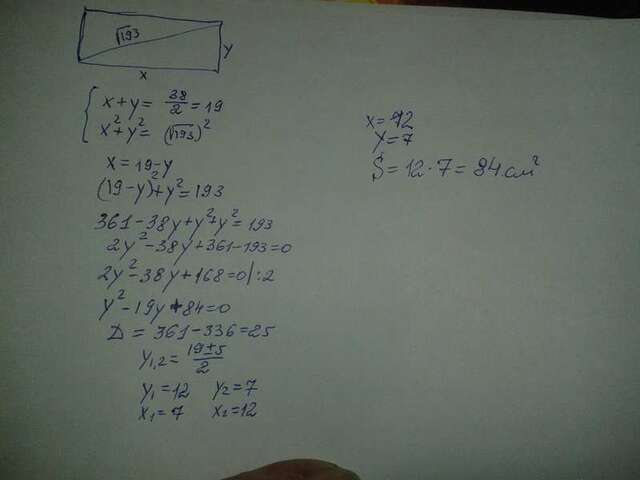 √193
y
x
x+y= 38/2 =19
x²+y²= (√193)²
x=19-y
(19-y)²+y²=193
361-38y+y²+y²=193
2y²-38y+361-193=0
2y²-38y+168=0|:2
y²-19y+84=0
D= 361-336=25
y1,2= 19±5/2
y1=12 y2=7
x1=7 x2=12
x=12
y=7
S=12·7=84 см²